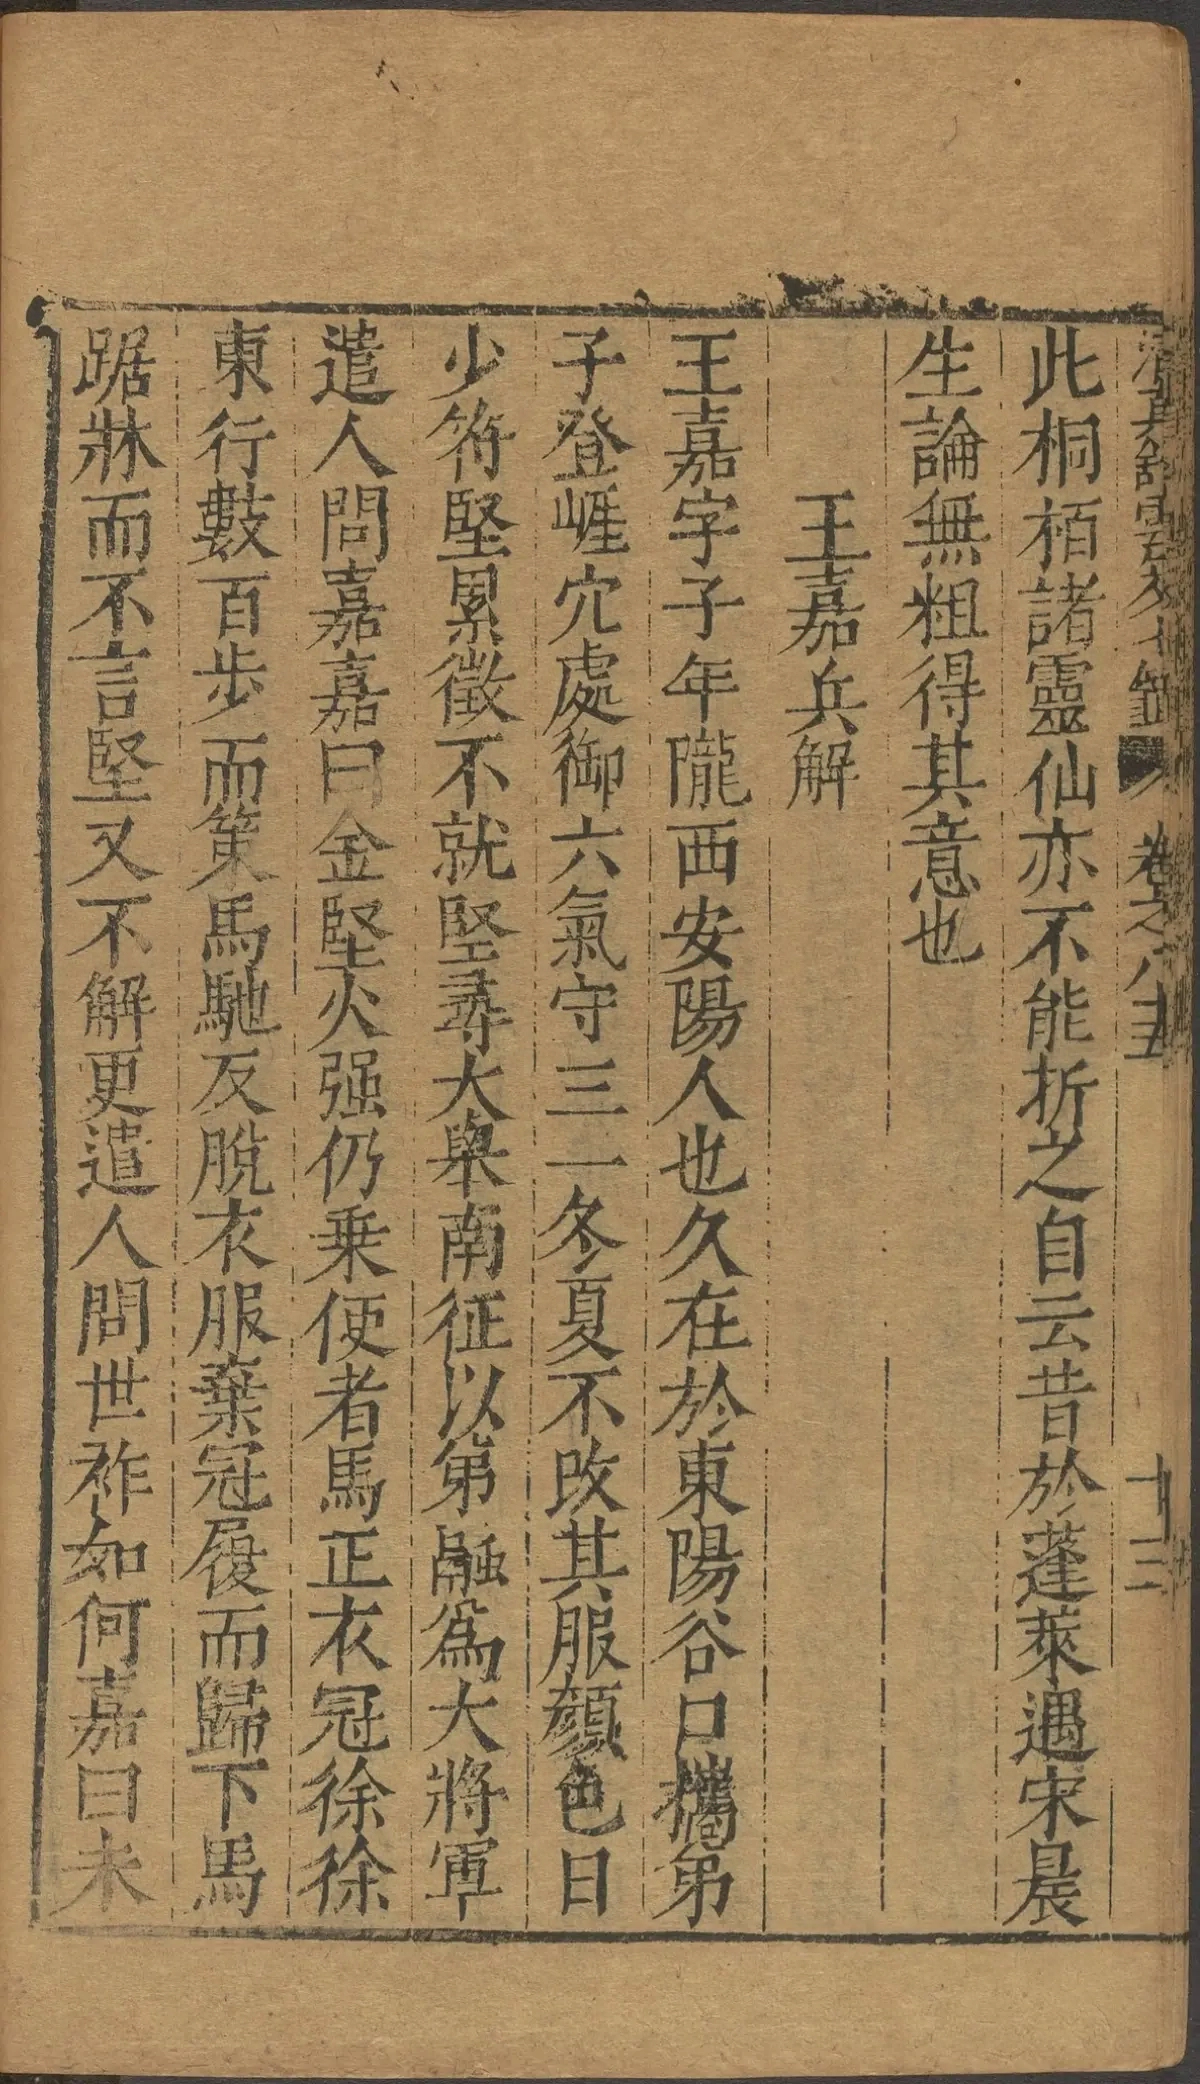 卷之八五
十三
此桐栢諸靈仙亦不能折之自云昔於蓬萊遇宋晨
生論無粗得其意也
王嘉兵解
王嘉字子年隴西安陽人也久在於東陽谷口攜弟
子登崕穴處御六氣守三一冬夏不改其服顔色日
少符堅累徵不就堅尋大舉南征以弟融爲大將軍
遣人問嘉嘉曰金堅火强仍乗使者馬正衣冠徐徐
東行數百步而策馬馳反脫衣服棄冠履而歸下馬
踞牀而不言堅又不解更遣人問世祚如何嘉曰未